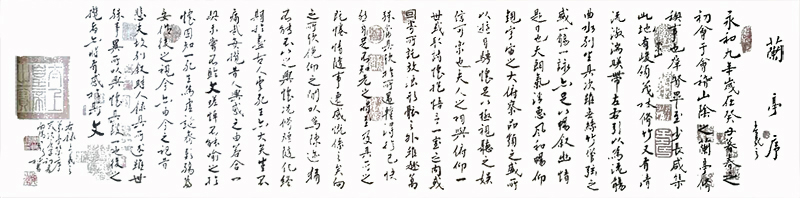 蘭亭序
王羲之
永和九年歲在癸丑暮春之
初會于會稽山陰之蘭亭脩
禊事也群賢畢至少長咸集
此地有峻領茂林脩竹又有清
流激湍暎帶左右引以為流觴
曲水列坐其次雖無絲竹管弦之
盛一觴一詠亦足以暢敘幽情
是日也天朗氣清惠風和暢仰
觀宇宙之大俯察品類之盛所
以遊目騁懷足以極視聽之娛
信可樂也夫人之相與俯仰一
世或取諸懷抱悟言一室之內或
因寄所託放浪形骸之外雖趣舍萬
殊靜躁不同當其欣於所遇蹔得於己快
然自足不知老之將至及其所之
既惓情隨事遷感慨係之矣向
之所欣俛仰之閒以為陳迹猶
不能不以之興懷況脩短隨化終
期於盡古人云死生亦大矣豈不
痛哉每攬昔人興感之由若合一
契未嘗不臨文嗟悼不能喻之於
懷固知一死生為虛誕齊彭殤為
妄作後之視今亦由今之視昔
悲夫故列敘時人錄其所述雖世
殊事異所以興懷其致一也後之
攬者亦將有感於斯文